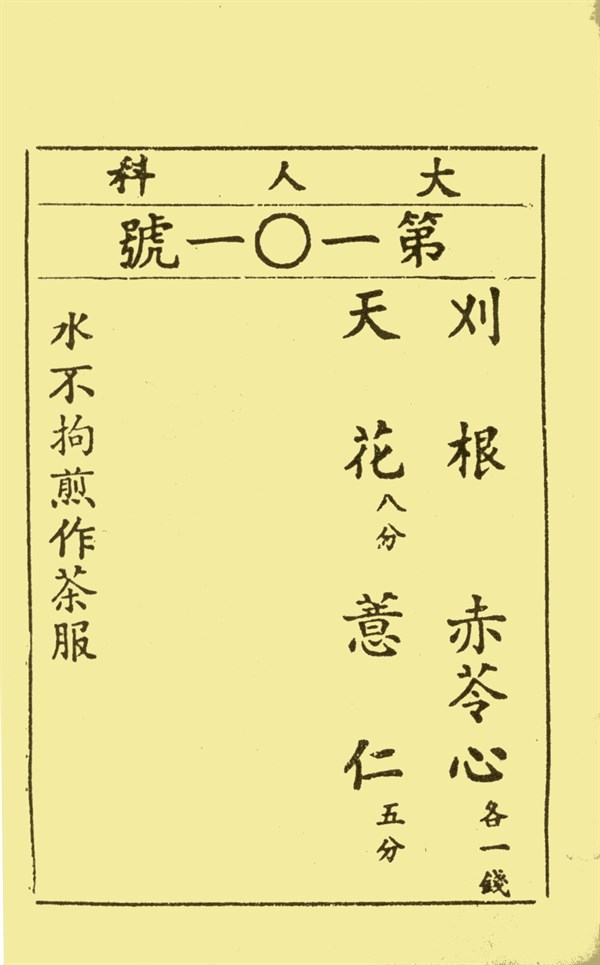 大人科
第一〇一號
刈根 赤苓心各一錢
天花八分 薏仁五分
水不拘煎作茶服